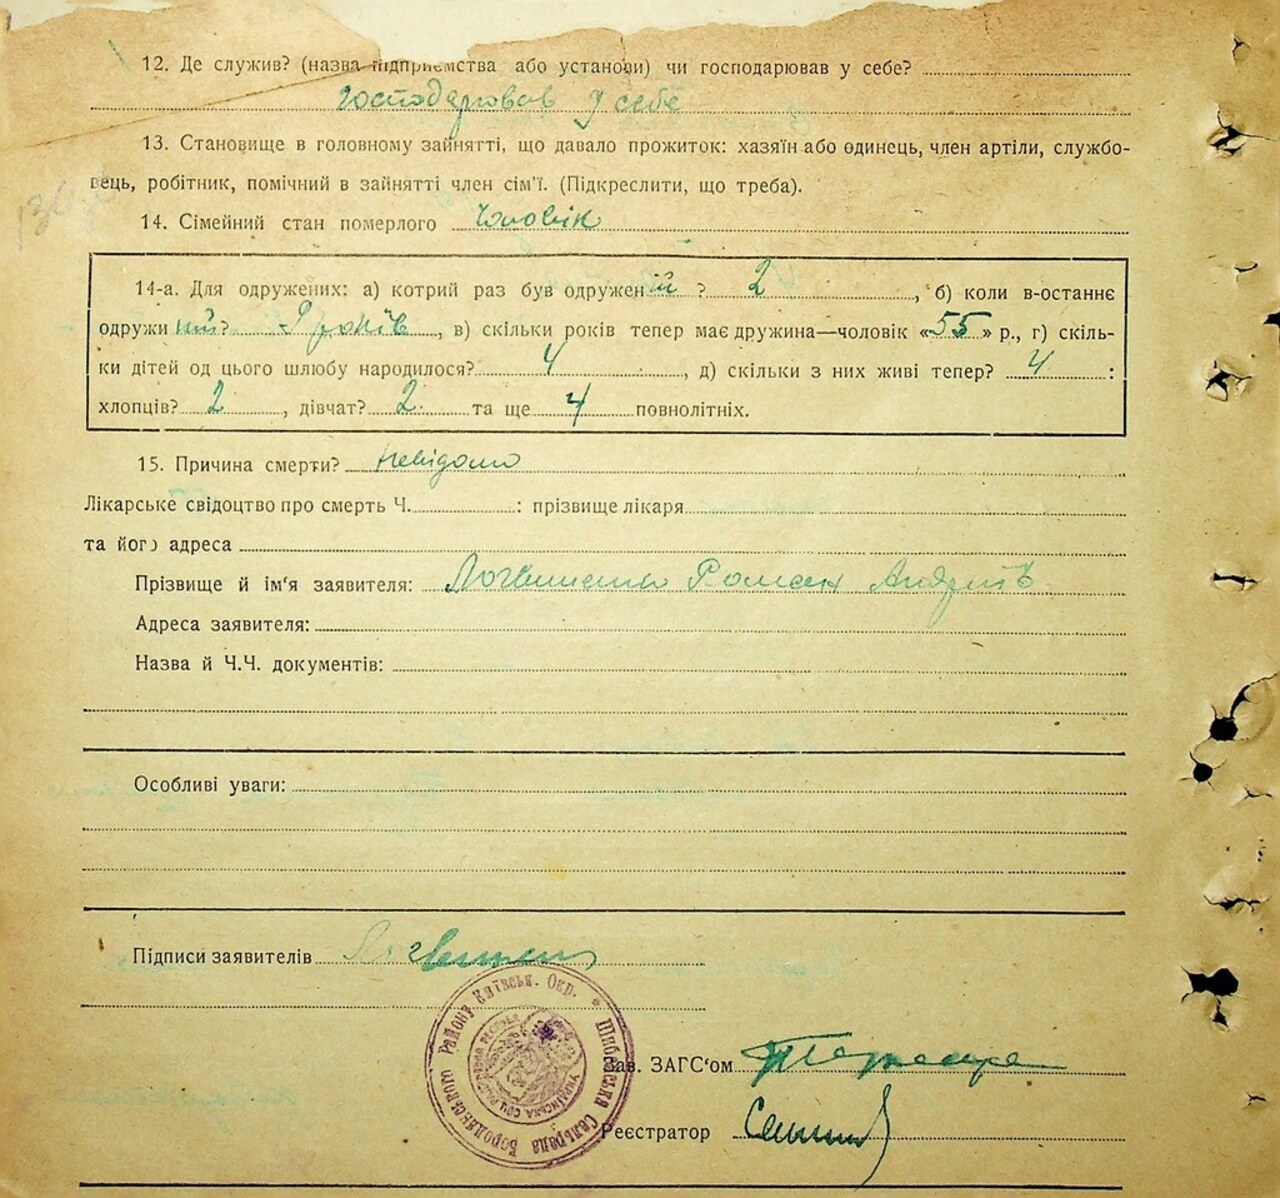 12. Де служив? (назва підприємства або установи) чи господарював у себе?
господарював у себе
13. Становище в головному зайнятті, що давало прожиток: хазяїн або одинець, член артіли, службо-
вець, робітник, помічний в зайнятті член сім'ї. (Підкреслити, що треба).
14. Сімейний стан померлого чоловік
14-а. Для одружених: а) котрий раз був одружений? 2, б) коли в-останнє
одружи ? років, в) скільки років тепер має дружина—чоловік «55» р., г) скіль-
ки дітей од цього шлюбу народилося? 4, д) скільки з них живі тепер? 4:
хлопців? 2, дівчат? 2 та ще 4 повнолітніх.
15. Причина смерти? невідомо
Лікарське свідоцтво про смерть Ч. : прізвище лікаря
та його адреса
Прізвище й ім'я заявителя: Логвиненко Роман Андріїв
Адреса заявителя:
Назва й Ч.Ч. документів:
Особливі уваги:
Підписи заявителів
Шибенська Сельрада Бородянського Району Київськ. Окр.
Зав. ЗАГС'ом
Реєстратор